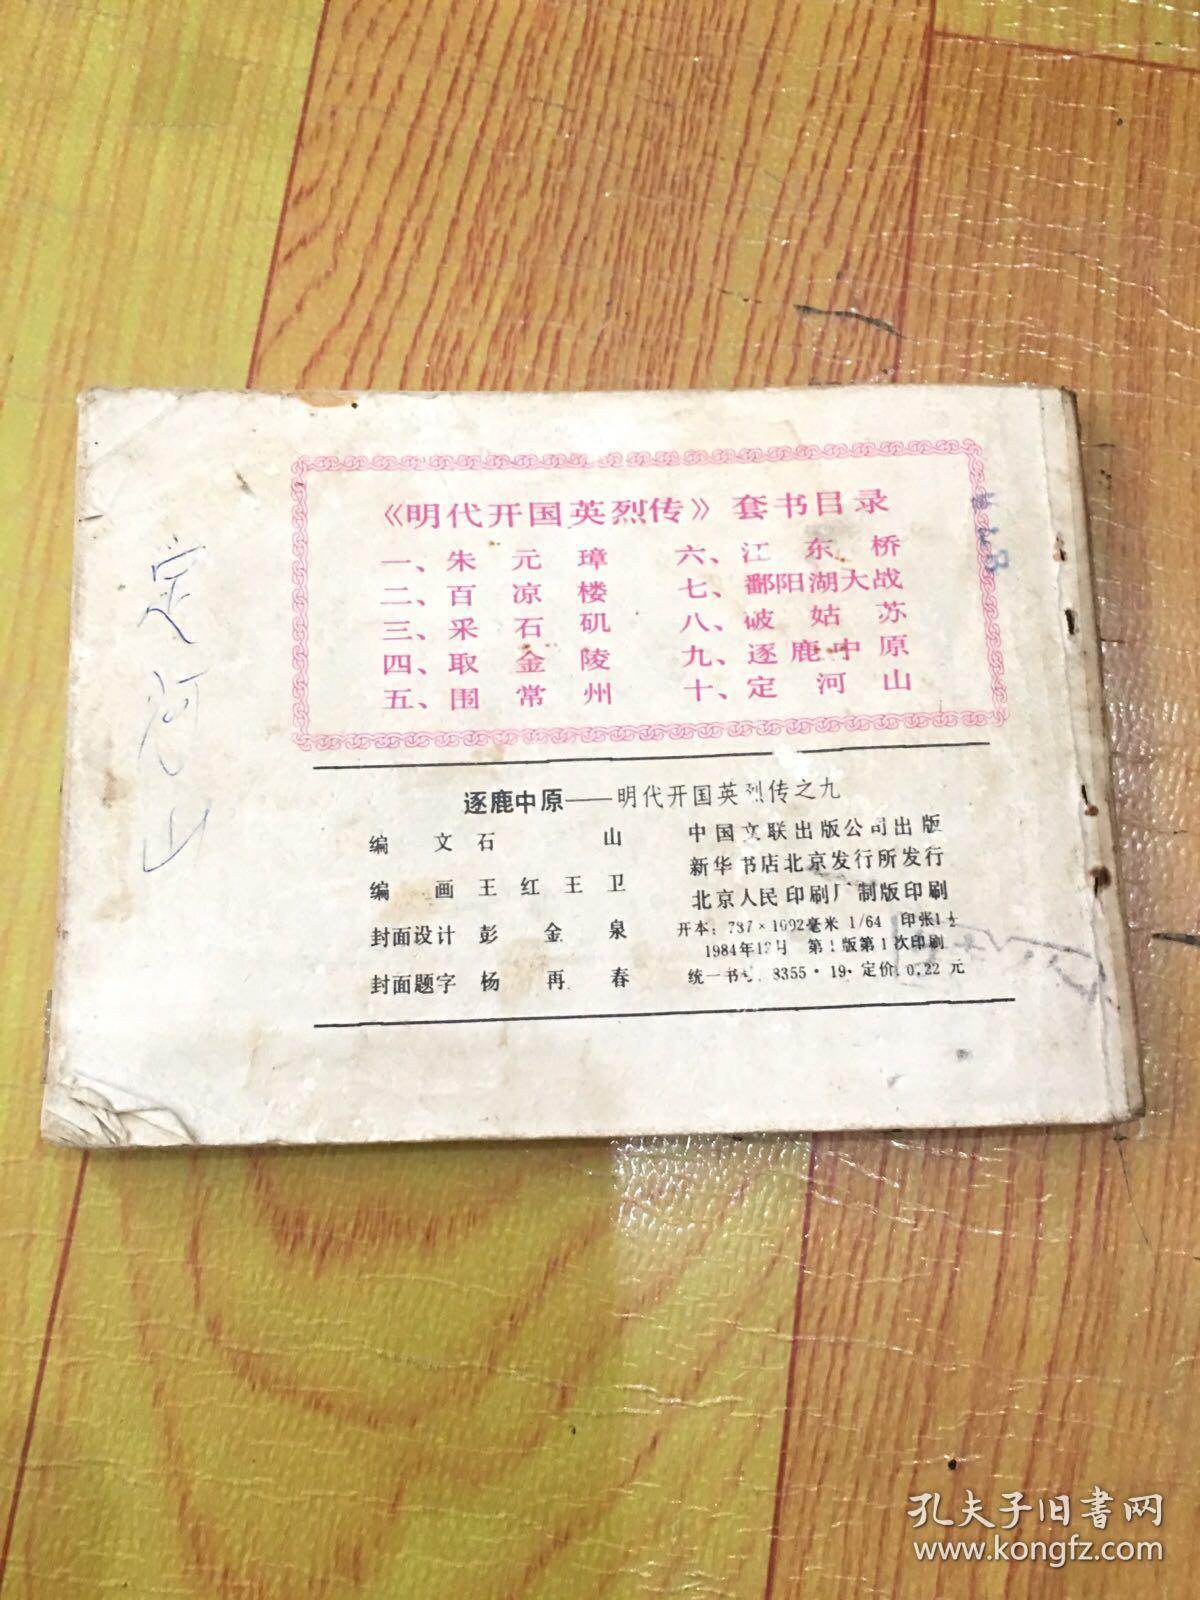 《明代开国英烈传》套书目录
一、朱元璋
二、百凉楼
三、采石矶
四、取金陵
五、围常州
六、江东桥
七、鄱阳湖大战
八、破姑苏
九、逐鹿中原
十、定河山
定河山
逐鹿中原——明代开国英烈传之九
编文 石山
编画 王红 王卫
封面设计 彭金泉
封面题字 杨再春
中国文联出版公司出版
新华书店北京发行所发行
北京人民印刷厂制版印刷
开本：787×1092毫米 1/64 印张1½
1984年12月 第1版第1次印刷
统一书号 8355·19·定价 0.22元
孔夫子旧書网
www.kongfz.com